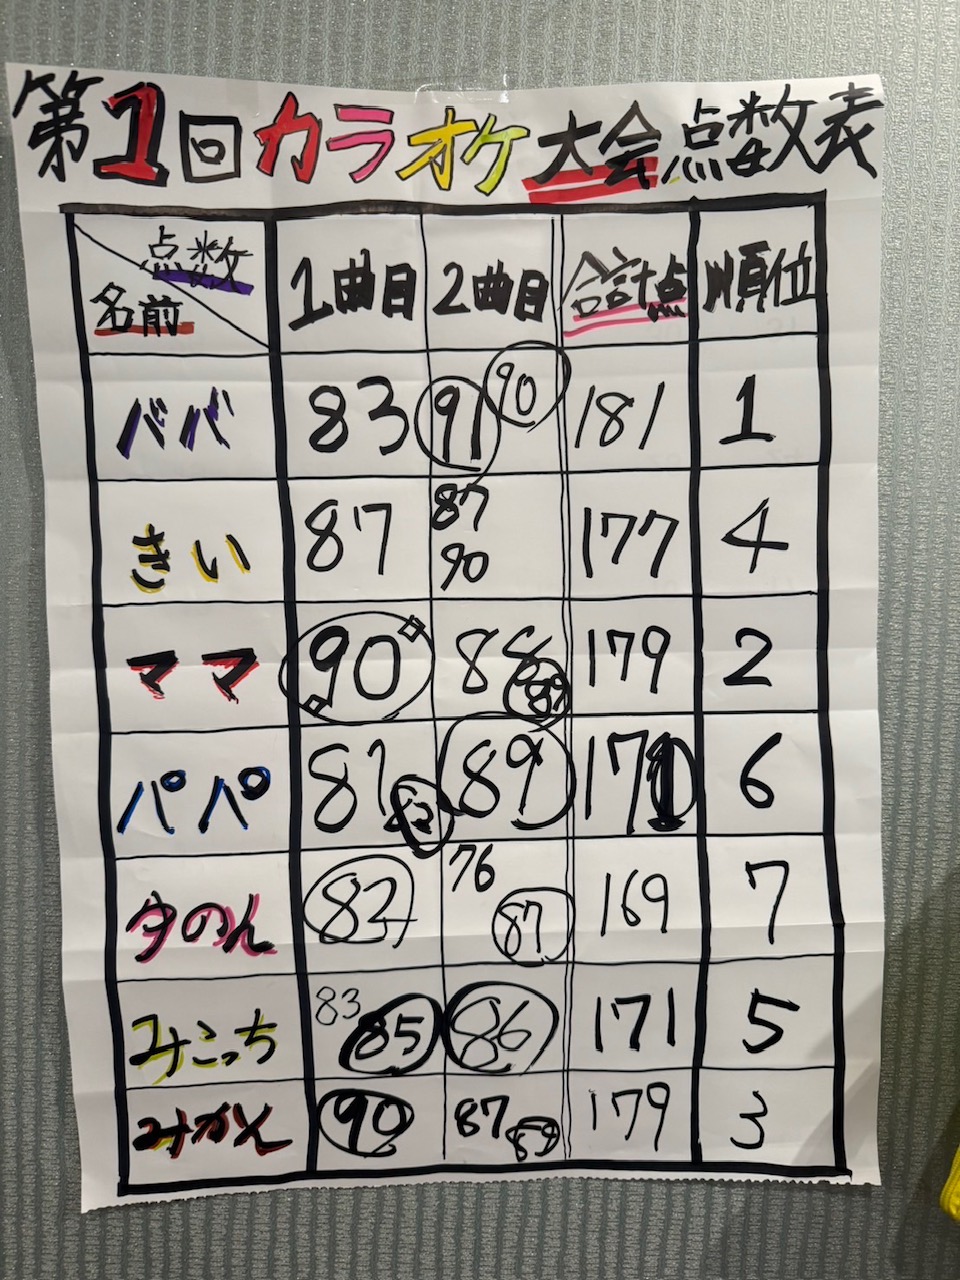 第1回カラオケ大会点数表
点数
名前
1曲目 2曲目 合計点 順位
ババ 83 91 90 181 1
きい 87 87 90 177 4
ママ 90 88 89 179 2
パパ 81 89 171 6
夕のん 82 76 87 169 7
みこっち 83 85 86 171 5
みかん 90 87 89 179 3